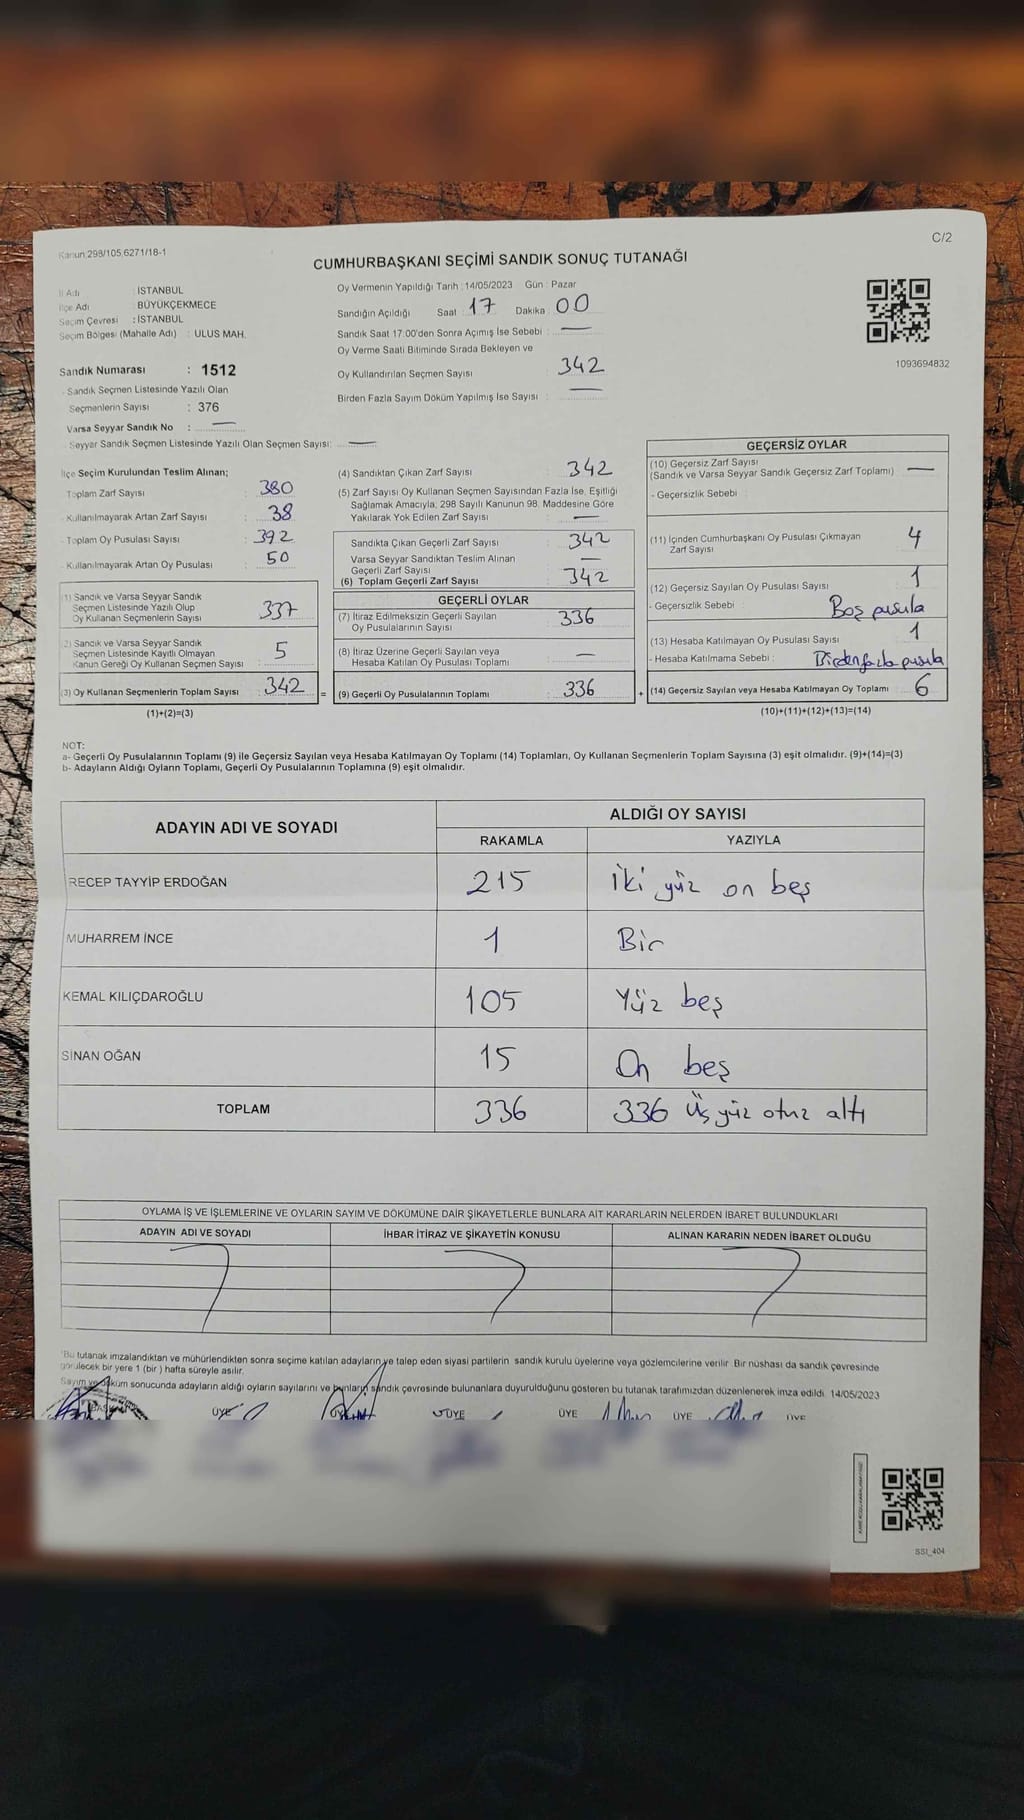 Kanun;298/105,6271/18-1
C/2
CUMHURBAŞKANI SEÇİMİ SANDIK SONUÇ TUTANAĞI
İl Adı : İSTANBUL
İlçe Adı : BÜYÜKÇEKMECE
Seçim Çevresi : İSTANBUL
Seçim Bölgesi (Mahalle Adı) : ULUS MAH.
Oy Vermenin Yapıldığı Tarih :14/05/2023 Gün : Pazar
Sandığın Açıldığı Saat : 17 Dakika : 00
Sandık Saat 17:00'den Sonra Açımış İse Sebebi : —
Oy Verme Saati Bitiminde Sırada Bekleyen ve
Oy Kullandırılan Seçmen Sayısı : 342
Birden Fazla Sayım Döküm Yapılmış İse Sayısı : —
1093694832
Sandık Numarası : 1512
- Sandık Seçmen Listesinde Yazılı Olan
Seçmenlerin Sayısı : 376
Varsa Seyyar Sandık No : —
- Seyyar Sandık Seçmen Listesinde Yazılı Olan Seçmen Sayısı: —
İlçe Seçim Kurulundan Teslim Alınan;
Toplam Zarf Sayısı : 380
- Kullanılmayarak Artan Zarf Sayısı : 38
- Toplam Oy Pusulası Sayısı : 392
- Kullanılmayarak Artan Oy Pusulası : 50
(1) Sandık ve Varsa Seyyar Sandık
Seçmen Listesinde Yazılı Olup
Oy Kullanan Seçmenlerin Sayısı : 337
(2) Sandık ve Varsa Seyyar Sandık
Seçmen Listesinde Kayıtlı Olmayan
Kanun Gereği Oy Kullanan Seçmen Sayısı : 5
(3) Oy Kullanan Seçmenlerin Toplam Sayısı : 342 =
(1)+(2)=(3)
(4) Sandıktan Çıkan Zarf Sayısı : 342
(5) Zarf Sayısı Oy Kullanan Seçmen Sayısından Fazla İse, Eşitliği
Sağlamak Amacıyla, 298 Sayılı Kanunun 98. Maddesine Göre
Yakılarak Yok Edilen Zarf Sayısı : —
Sandıkta Çıkan Geçerli Zarf Sayısı : 342
Varsa Seyyar Sandıktan Teslim Alınan
Geçerli Zarf Sayısı : —
(6) Toplam Geçerli Zarf Sayısı : 342
GEÇERLİ OYLAR
(7) İtiraz Edilmeksizin Geçerli Sayılan
Oy Pusulalarının Sayısı : 336
(8) İtiraz Üzerine Geçerli Sayılan veya
Hesaba Katılan Oy Pusulası Toplamı : —
(9) Geçerli Oy Pusulalarının Toplamı : 336 +
GEÇERSİZ OYLAR
(10) Geçersiz Zarf Sayısı
(Sandık ve Varsa Seyyar Sandık Geçersiz Zarf Toplamı) : —
- Geçersizlik Sebebi :
(11) İçinden Cumhurbaşkanı Oy Pusulası Çıkmayan
Zarf Sayısı : 4
(12) Geçersiz Sayılan Oy Pusulası Sayısı : 1
- Geçersizlik Sebebi : Boş pusula
(13) Hesaba Katılmayan Oy Pusulası Sayısı : 1
- Hesaba Katılmama Sebebi : Birden fazla pusula
(14) Geçersiz Sayılan veya Hesaba Katılmayan Oy Toplamı : 6
(10)+(11)+(12)+(13)=(14)
NOT:
a- Geçerli Oy Pusulalarının Toplamı (9) ile Geçersiz Sayılan veya Hesaba Katılmayan Oy Toplamı (14) Toplamları, Oy Kullanan Seçmenlerin Toplam Sayısına (3) eşit olmalıdır. (9)+(14)=(3)
b- Adayların Aldığı Oyların Toplamı, Geçerli Oy Pusulalarının Toplamına (9) eşit olmalıdır.
ADAYIN ADI VE SOYADI
ALDIĞI OY SAYISI
RAKAMLA YAZIYLA
RECEP TAYYİP ERDOĞAN 215 İki yüz on beş
MUHARREM İNCE 1 Bir
KEMAL KILIÇDAROĞLU 105 Yüz beş
SİNAN OĞAN 15 On beş
TOPLAM 336 336 Üç yüz otuz altı
OYLAMA İŞ VE İŞLEMLERİNE VE OYLARIN SAYIM VE DÖKÜMÜNE DAİR ŞİKAYETLERLE BUNLARA AİT KARARLARIN NELERDEN İBARET BULUNDUKLARI
ADAYIN ADI VE SOYADI İHBAR İTİRAZ VE ŞİKAYETİN KONUSU ALINAN KARARIN NEDEN İBARET OLDUĞU
*Bu tutanak imzalandıktan ve mühürlendikten sonra seçime katılan adayların ve talep eden siyasi partilerin sandık kurulu üyelerine veya gözlemcilerine verilir. Bir nüshası da sandık çevresinde
görülecek bir yere 1 (bir) hafta süreyle asılır.
Sayım ve döküm sonucunda adayların aldığı oyların sayılarını ve bunların sandık çevresinde bulunanlara duyurulduğunu gösteren bu tutanak tarafımızdan düzenlenerek imza edildi. 14/05/2023
BAŞKAN ÜYE ÜYE ÜYE ÜYE ÜYE ÜYE
SSI_404